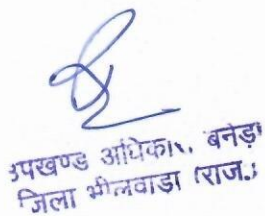 उपखण्ड अधिका.. बनेड़ा
जिला भीलवाडा (राज.)